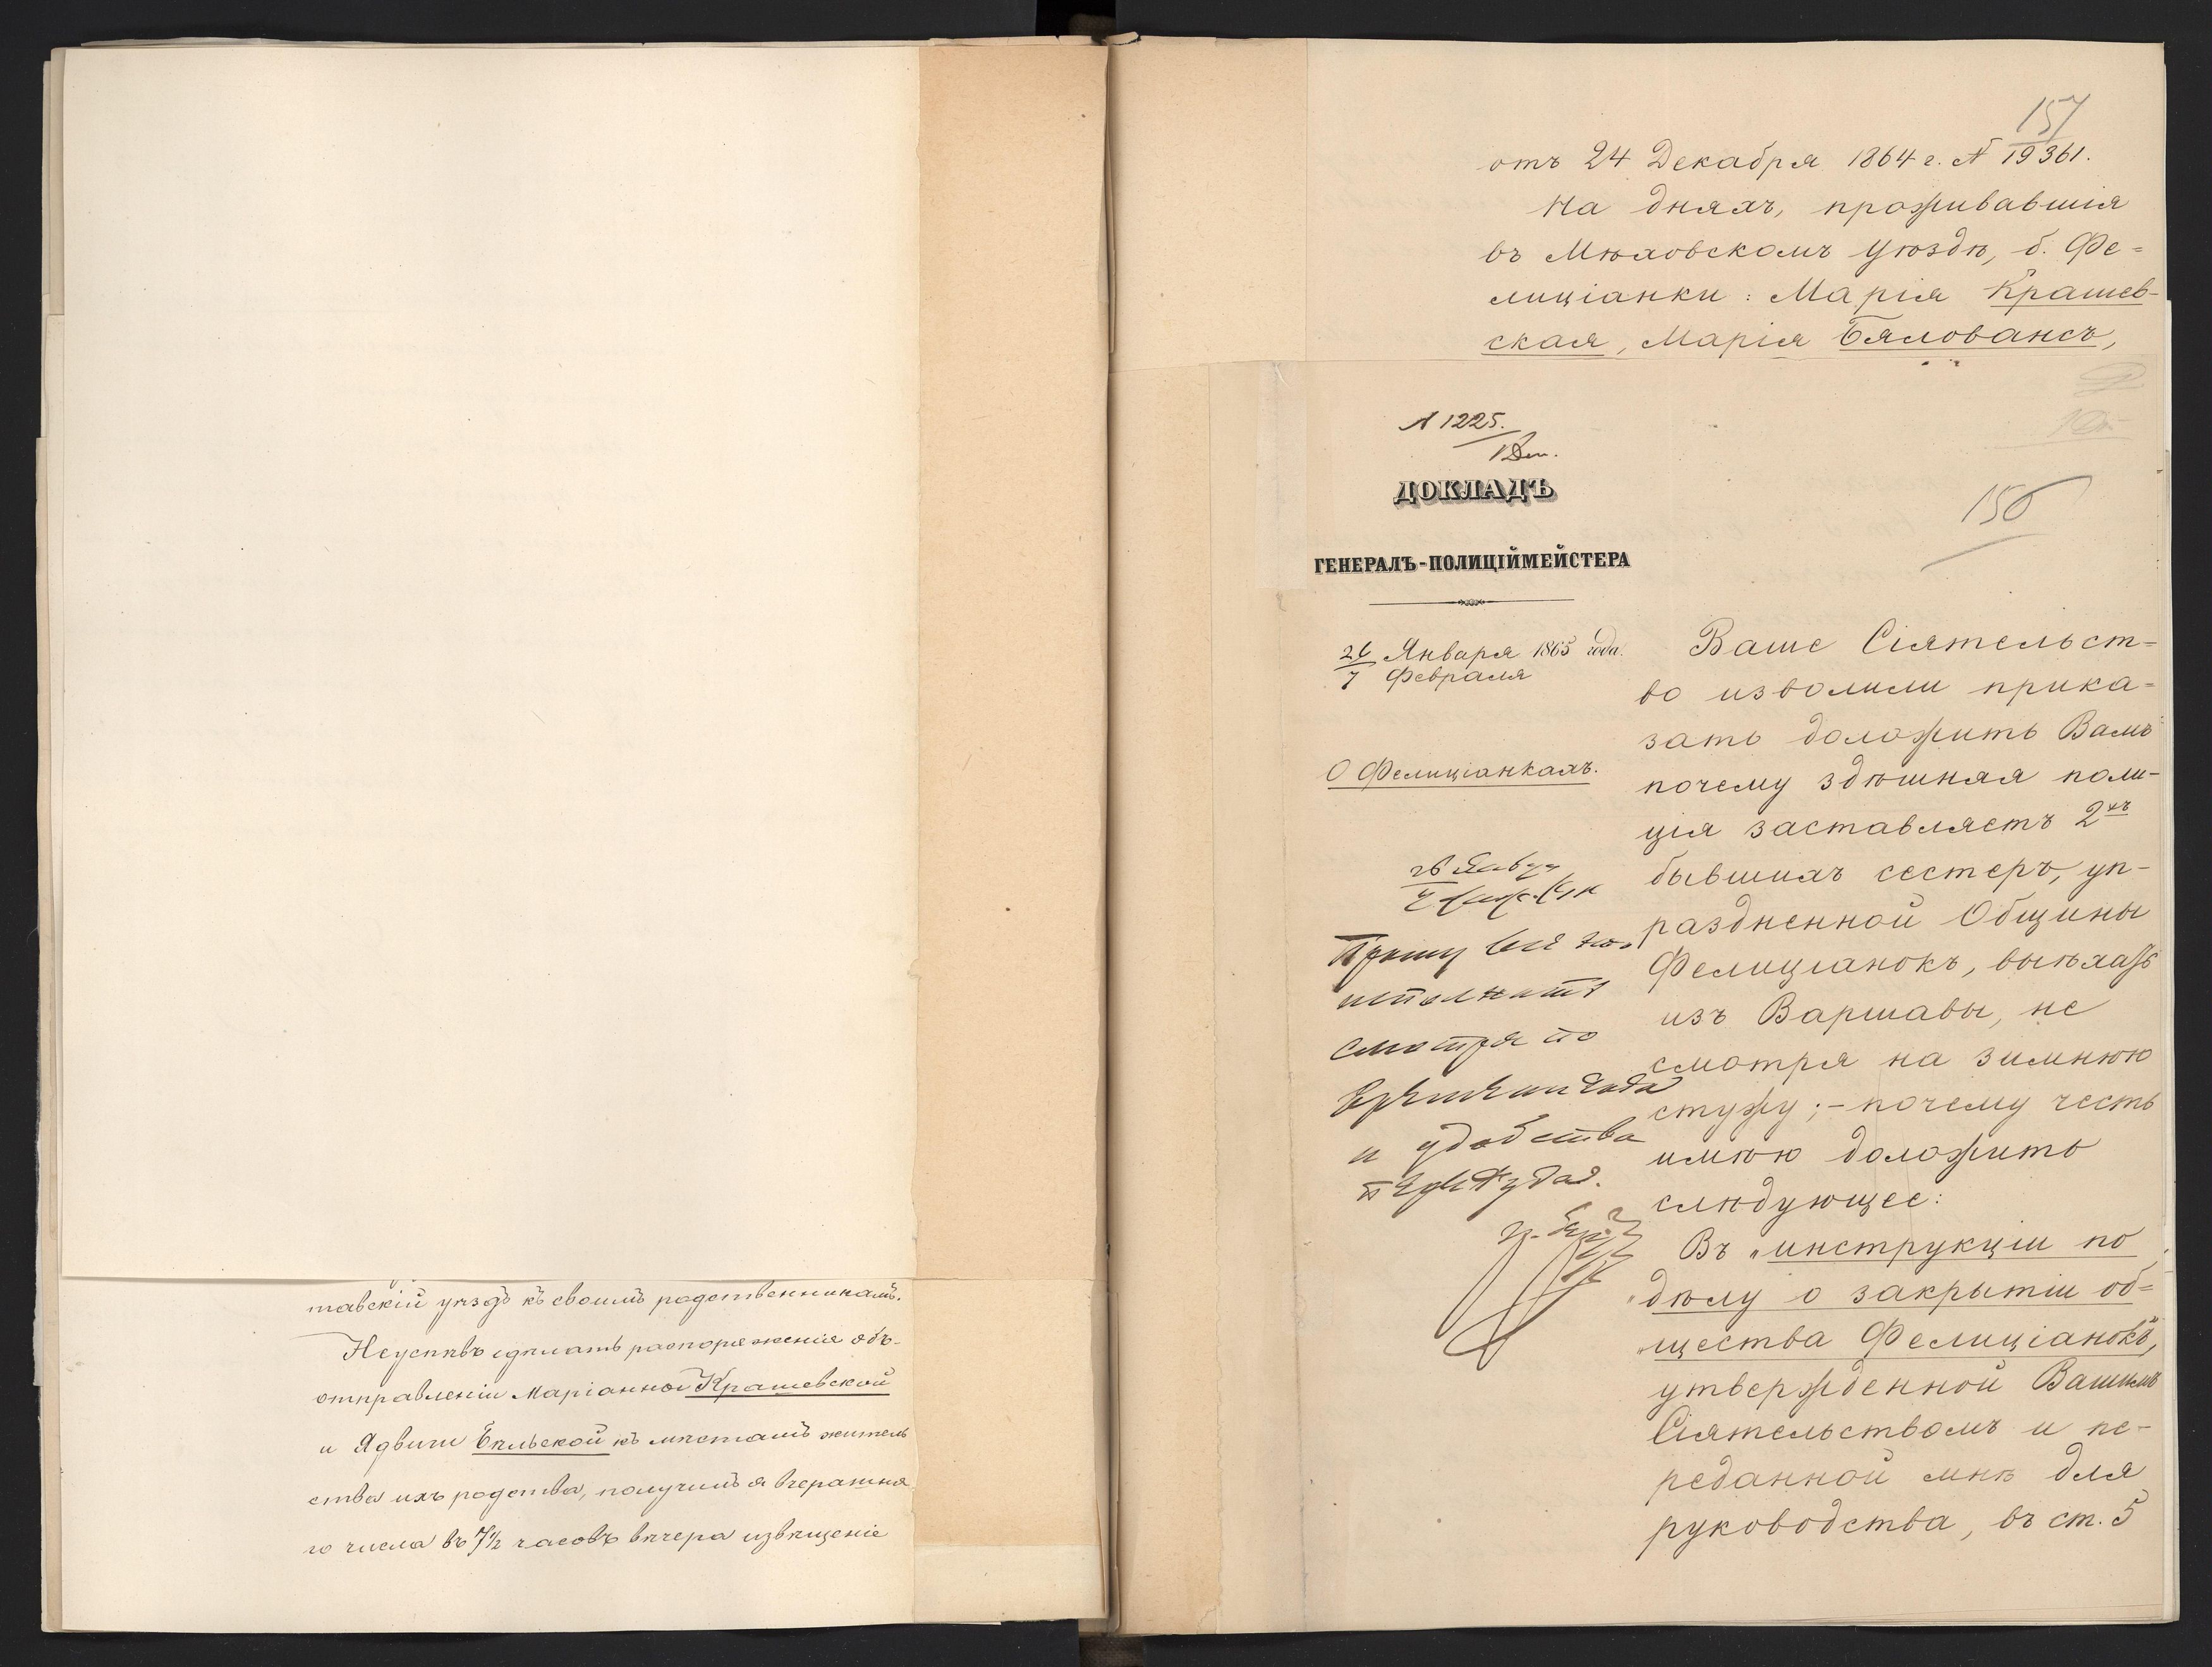 тавскій уѣздъ къ своимъ родственникамъ.
Неуспѣвъ сдѣлать распоряженія объ-
отправленіи Маріанны Крашевской
и Ядвиги Бѣльской къ мѣстамъ житель
ства ихъ родства, получилъ я вчерашня
го числа въ 7½ часовъ вечера извѣщеніе
157
отъ 24 Декабря 1864 г. № 19361.
На дняхъ, проживавшія
въ Мѣховскомъ Уѣздѣ, б. Фе=
лиціанки: Марія Крашев-
ская, Марія Бяловансъ,
№ 1225.
ДОКЛАДЪ
156
ГЕНЕРАЛЪ-ПОЛИЦІЙМЕЙСТЕРА
26 Января 1865 года.
7 Февраля
О Фелиціанкахъ.
Прошу
исполнить
смотря по
времени года
и удобства
переѣзда.
Ваше Сіятельст=
во изволили прика=
зать доложить Вамъ
почему здѣшняя поли-
ція заставляетъ 2хъ
бывшихъ сестеръ, уп-
раздненной Общины
Фелиціанокъ, выѣхать
изъ Варшавы, не
смотря на зимнюю
стужу; - почему честь
имѣю доложить
слѣдующее:
Въ „инструкціи по
„дѣлу о закрытіи об=
„щества Фелиціанокъ",
утвержденной Вашимъ
Сіятельствомъ и пе-
реданной мнѣ для
руководства, въ ст. 5